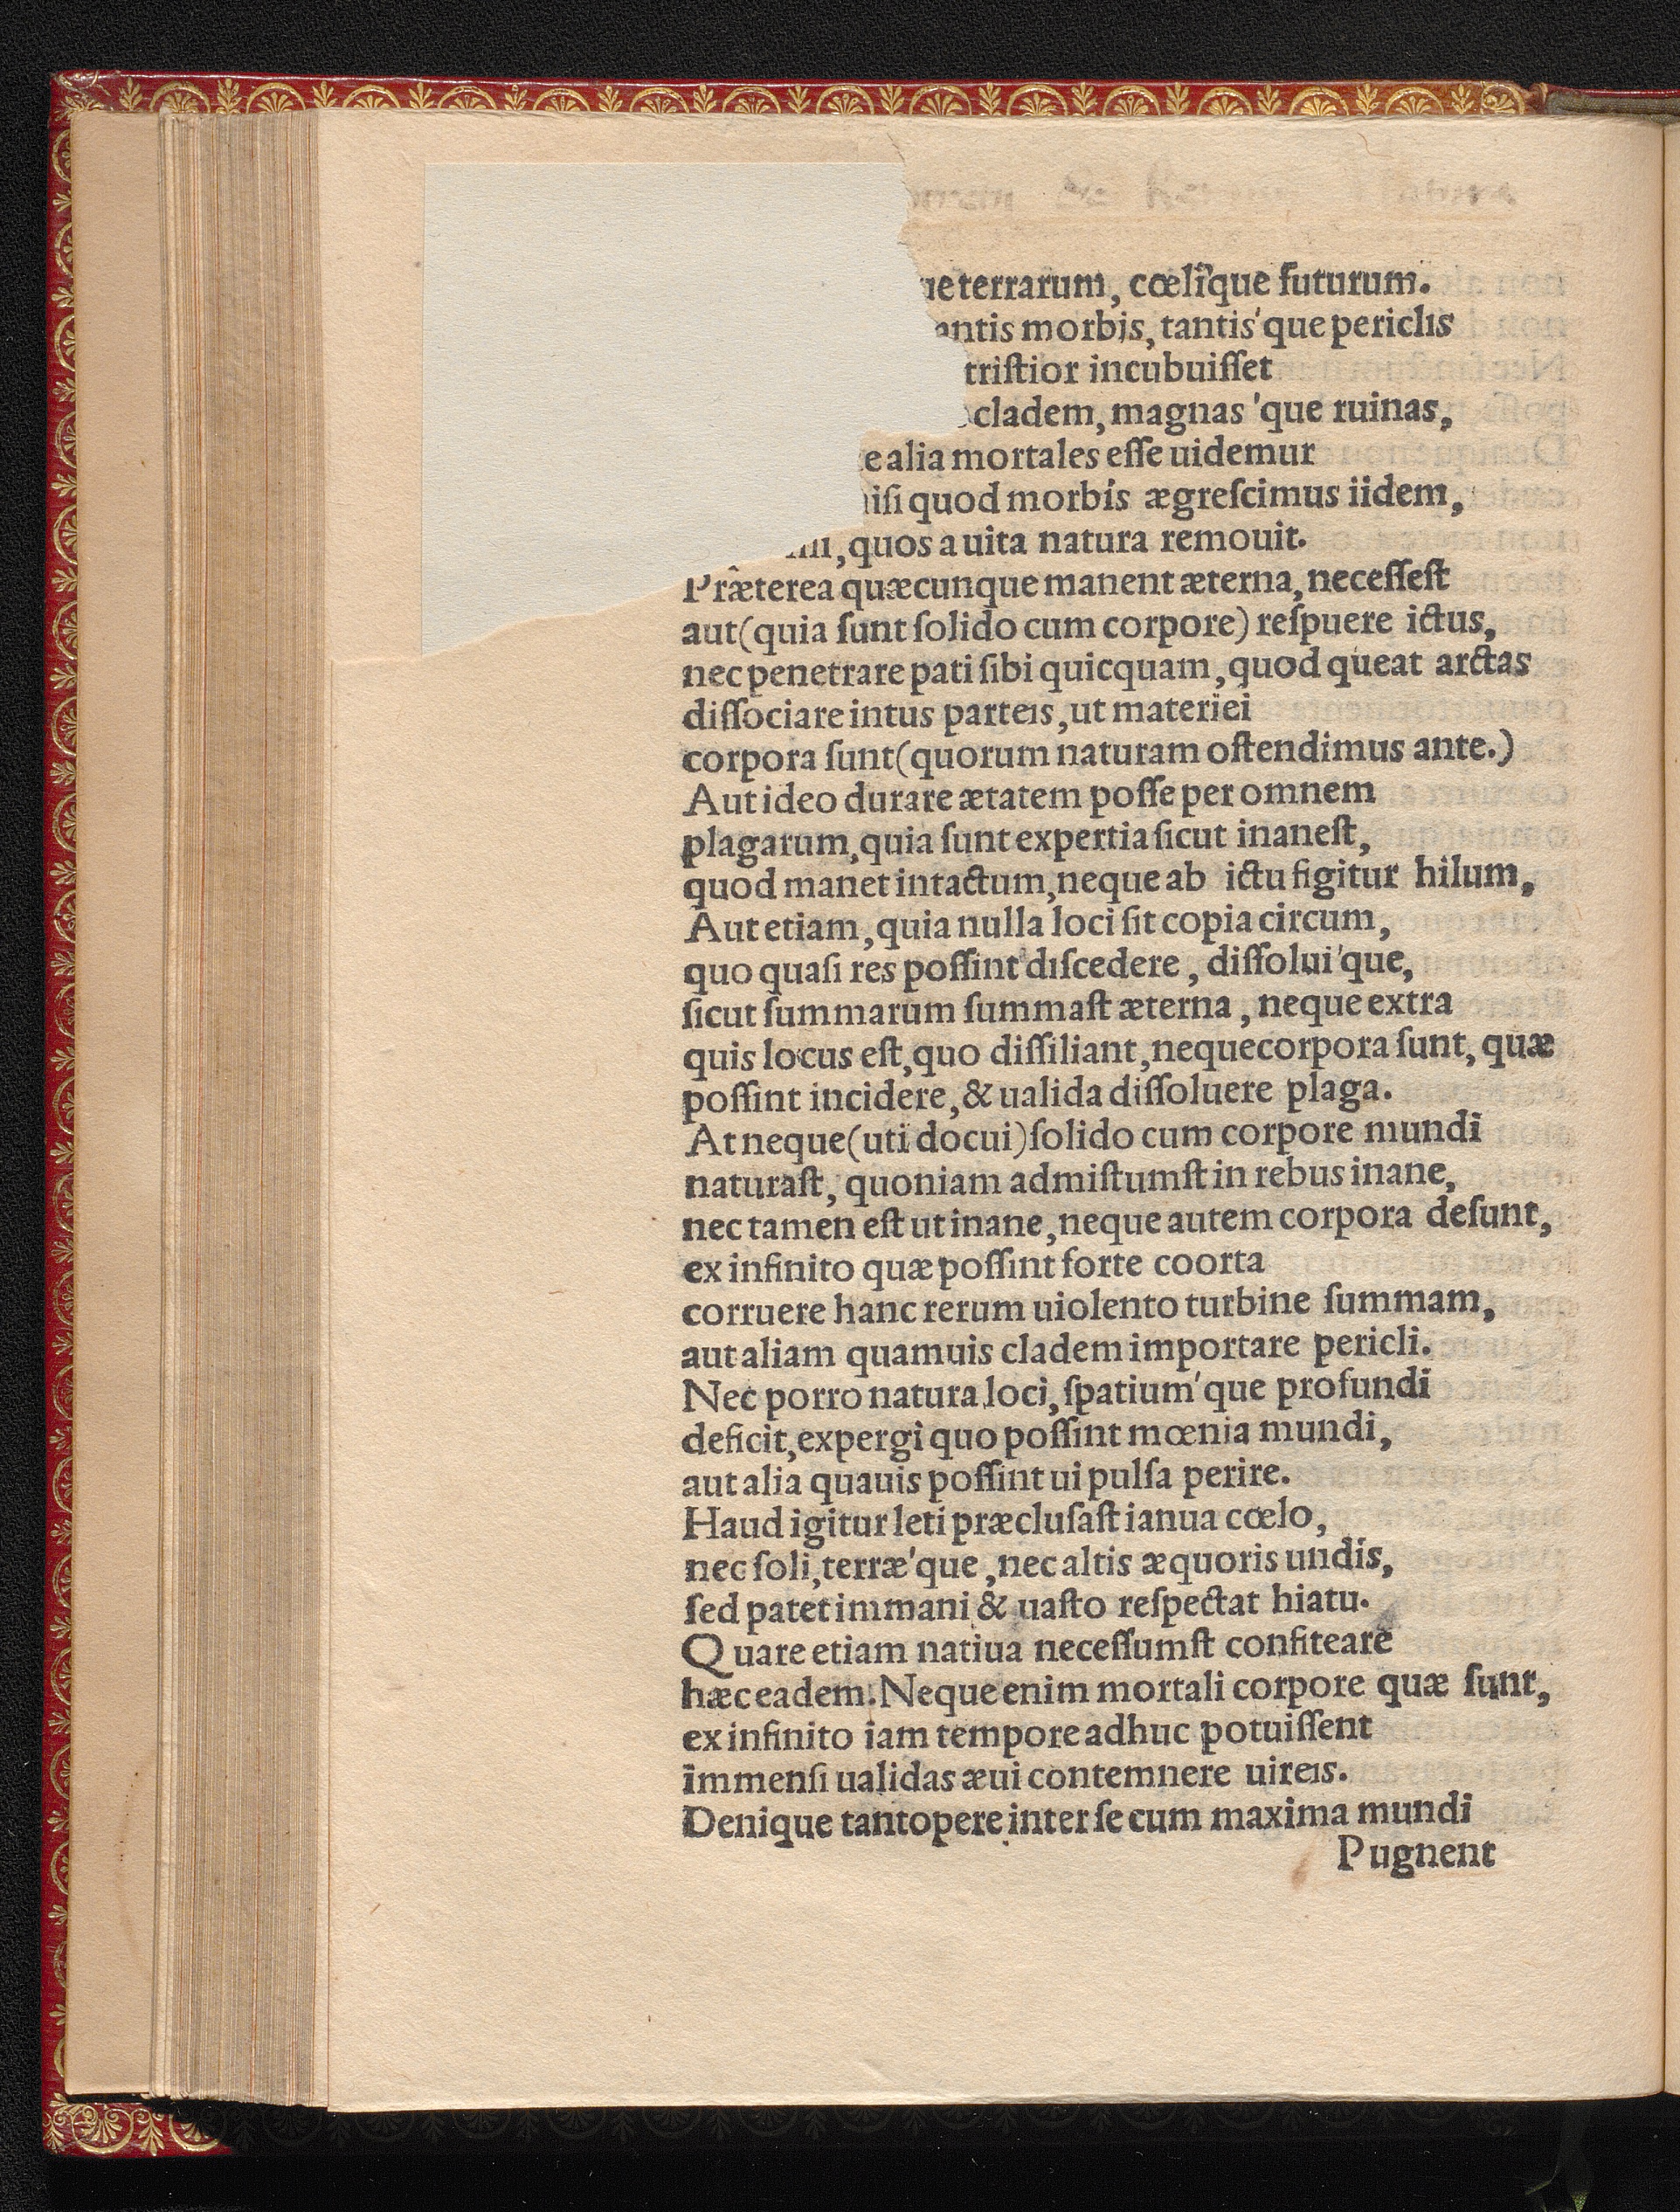 ue terrarum, cœlíque futurum.
antis morbis, tantis'que periclis
triſtior incubuiſſet
cladem, magnas 'que ruinas,
e alia mortales eſſe uidemur
iſi quod morbís ægreſcimus iidem,
quos a uita natura remouit.
Præterea quæcunque manent æterna, neceſſeſt
aut (quia ſunt ſolido cum corpore) reſpuere ictus,
nec penetrare pati ſibi quicquam, quod queat arctas
diſſociare intus parteis, ut materiei
corpora ſunt (quorum naturam oſtendimus ante.)
Aut ideo durare ætatem poſſe per omnem
plagarum, quia ſunt expertia ſicut inaneſt,
quod manet intactum, neque ab ictu figitur hilum,
Aut etiam, quia nulla loci ſit copia circum,
quo quaſi res poſſint diſcedere, diſſolui'que,
ſicut ſummarum ſummaſt æterna, neque extra
quis locus eſt, quo diſſiliant, neque corpora ſunt, quæ
poſſint incidere, & ualida diſſoluere plaga.
At neque (uti docui) ſolido cum corpore mundi
naturaſt, quoniam admiſtumſt in rebus inane,
nec tamen eſt ut inane, neque autem corpora deſunt,
ex infinito quæ poſſint forte coorta
corruere hanc rerum uiolento turbine ſummam,
aut aliam quamuis cladem importare pericli.
Nec porro natura loci, ſpatium'que profundi
deficit, expergi quo poſſint mœnia mundi,
aut alia quauis poſſint ui pulſa perire.
Haud igitur leti præcluſaſt ianua cœlo,
nec ſoli, terræ'que, nec altis æquoris undís,
ſed patet immani & uaſto reſpectat hiatu.
Quare etiam natiua neceſſumſt confiteare
hæc eadem. Neque enim mortali corpore quæ ſunt,
ex infinito iam tempore adhuc potuiſſent
immenſi ualidas æui contemnere uireis.
Denique tantopere inter ſe cum maxima mundi
Pugnent